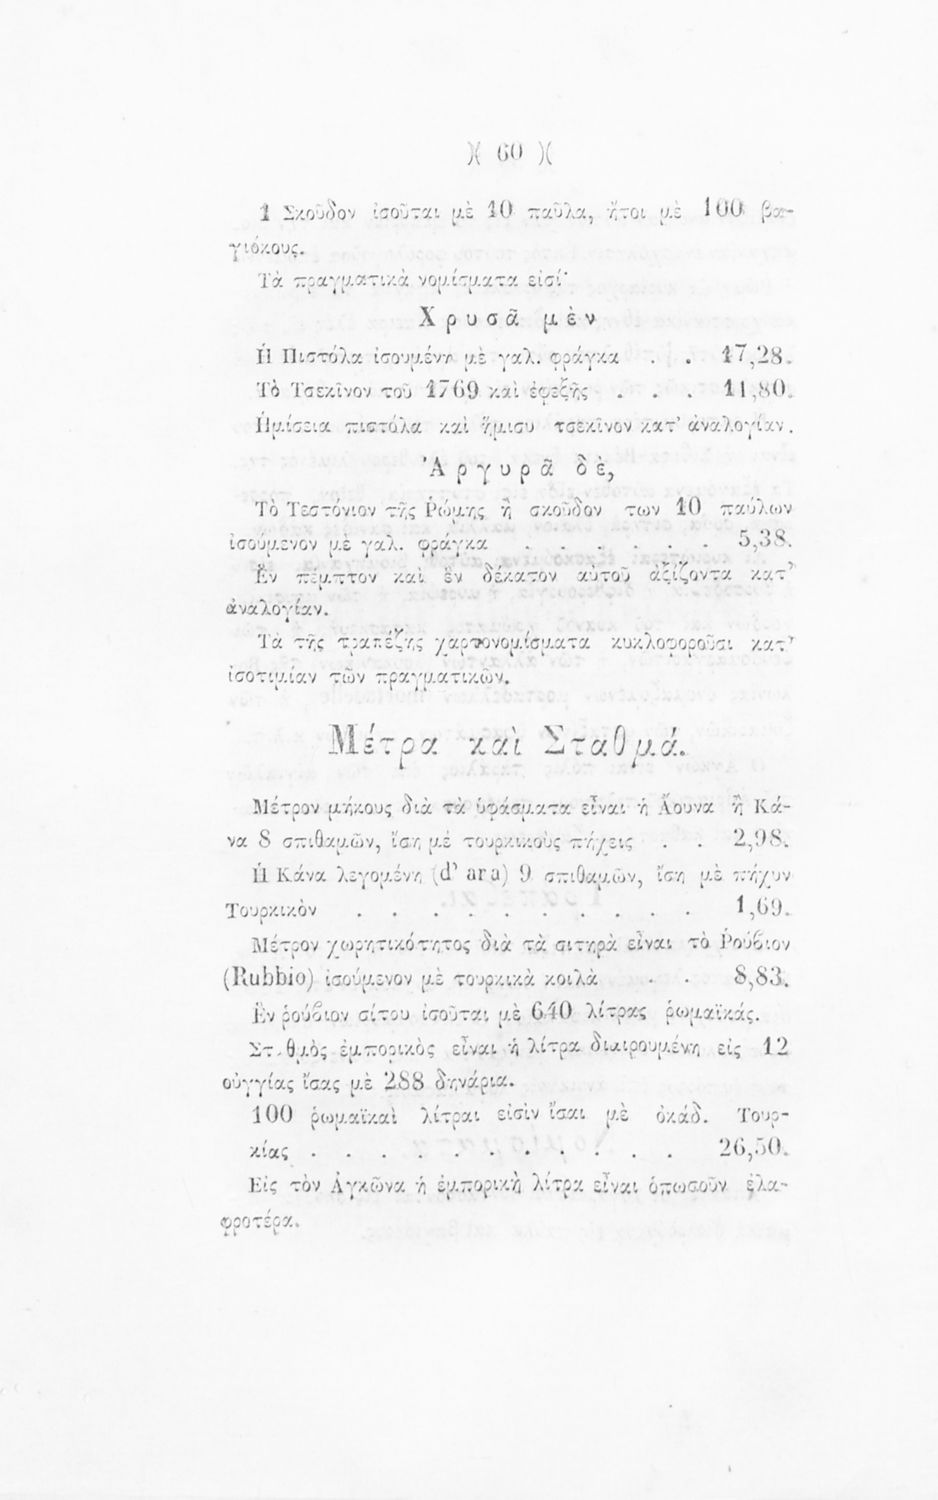 )( 60 )(
1 Σκοῦδον ἰσοῦται μὲ 10 παῦλα, ἤτοι μὲ 100 βα-
γιόκους.
Τὰ πραγματικὰ νομίσματα εἰσί·
Χρυσᾶ μὲν
Ἡ Πιστόλα ἰσουμένη μὲ γαλ. φράγκα . . 17,28.
Τὸ Τσεκῖνον τοῦ 1769 καὶ ἐφεξῆς . . . 11,80.
Ἡμίσεια πιστόλα καὶ ἥμισυ τσεκῖνον κατ’ ἀναλογίαν.
Ἀργυρᾶ δὲ,
Τὸ Τεστόνιον τῆς Ῥώμης ἢ σκοῦδον των 10 παύλων
ἰσούμενον μὲ γαλ. φράγκα . . . . . . 5,38.
Ἓν πέμπτον καὶ ἓν δέκατον αὐτοῦ ἀξίζοντα κατ’
ἀναλογίαν.
Τὰ τῆς τραπέζης χαρτονομίσματα κυκλοφοροῦσι κατ’
ἰσοτιμίαν τῶν πραγματικῶν.
Μέτρα καὶ Σταθμά.
Μέτρον μήκους διὰ τὰ ὑφάσματα εἶναι ἡ Ἄουνα ἢ Κά-
να 8 σπιθαμῶν, ἴση μὲ τουρκικοὺς πήχεις . . 2,98.
Ἡ Κάνα λεγομένη (d’ ara) 9 σπιθαμῶν, ἴση μὲ πήχυν
Τουρκικὸν . . . . . . . . . . 1,69.
Μέτρον χωρητικότητος διὰ τὰ σιτηρὰ εἶναι τὸ Ῥούβιον
(Rubbio) ἰσούμενον μὲ τουρκικὰ κοιλὰ . . 8,83.
Ἓν ῥούβιον σίτου ἰσοῦται μὲ 640 λίτρας ῥωμαϊκάς.
Στ.θμὸς ἐμπορικὸς εἶναι ἡ λίτρα διαιρουμένη εἰς 12
οὐγγίας ἴσας μὲ 288 δηνάρια.
100 ῥωμαϊκαὶ λίτραι εἰσὶν ἴσαι μὲ ὀκάδ. Τουρ-
κίας . . . . . . . . . . . 26,50.
Εἰς τὸν Ἀγκῶνα ἡ ἐμπορικὴ λίτρα εἶναι ὁπωσοῦν ἐλα-
φροτέρα.